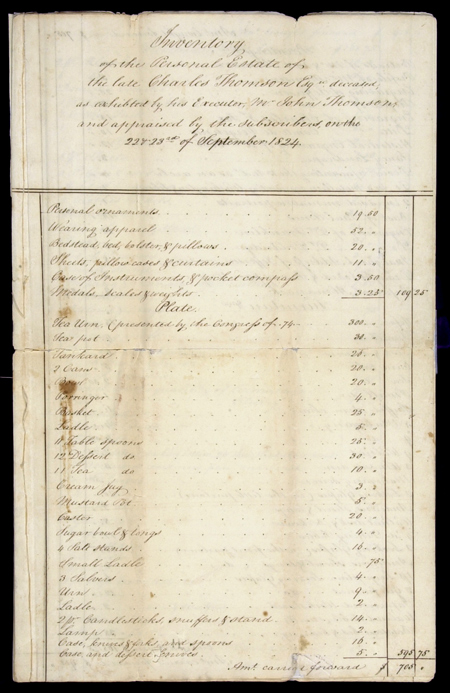 Inventory
of the Personal Estate of
the late Charles Thomson Esqr. deceased,
as exhibited by his Executor, Mr John Thomson,
and appraised by the subscribers, on the
22 & 23rd of September 1824.
Personal ornaments 19.50
Wearing apparel 52. "
Bedstead, bed, bolster, & pillows 20. "
Sheets, pillow cases & curtains 11. "
Case of Instruments, & pocket compass 3.50
Medals, scales & weights 3.25 109 25
Plate
Tea Urn (presented by the Congress of -74- 300. "
Tea pot 30. "
Tankard "
2 Cans 20. "
Bowl 20. "
Porringer 4. "
Basket 25. "
Ladle 5. "
Table spoons 25. "
12 Dessert do 30. "
11 Tea do 10. "
Cream jug 3. "
Mustard Pot 5. "
Castor 20. "
Sugar bowl & tongs 4. "
4 Salt stands "
Small Ladle .75
3 Salvers 4. "
Urn 9. "
Ladle 2. "
2 pr. Candlesticks, snuffers & stand 14. "
Lamp 2. "
Case, knives & forks, and spoons "
Case, and dessert knives 5. " 595 75
Amt. carried forward $ 705 "